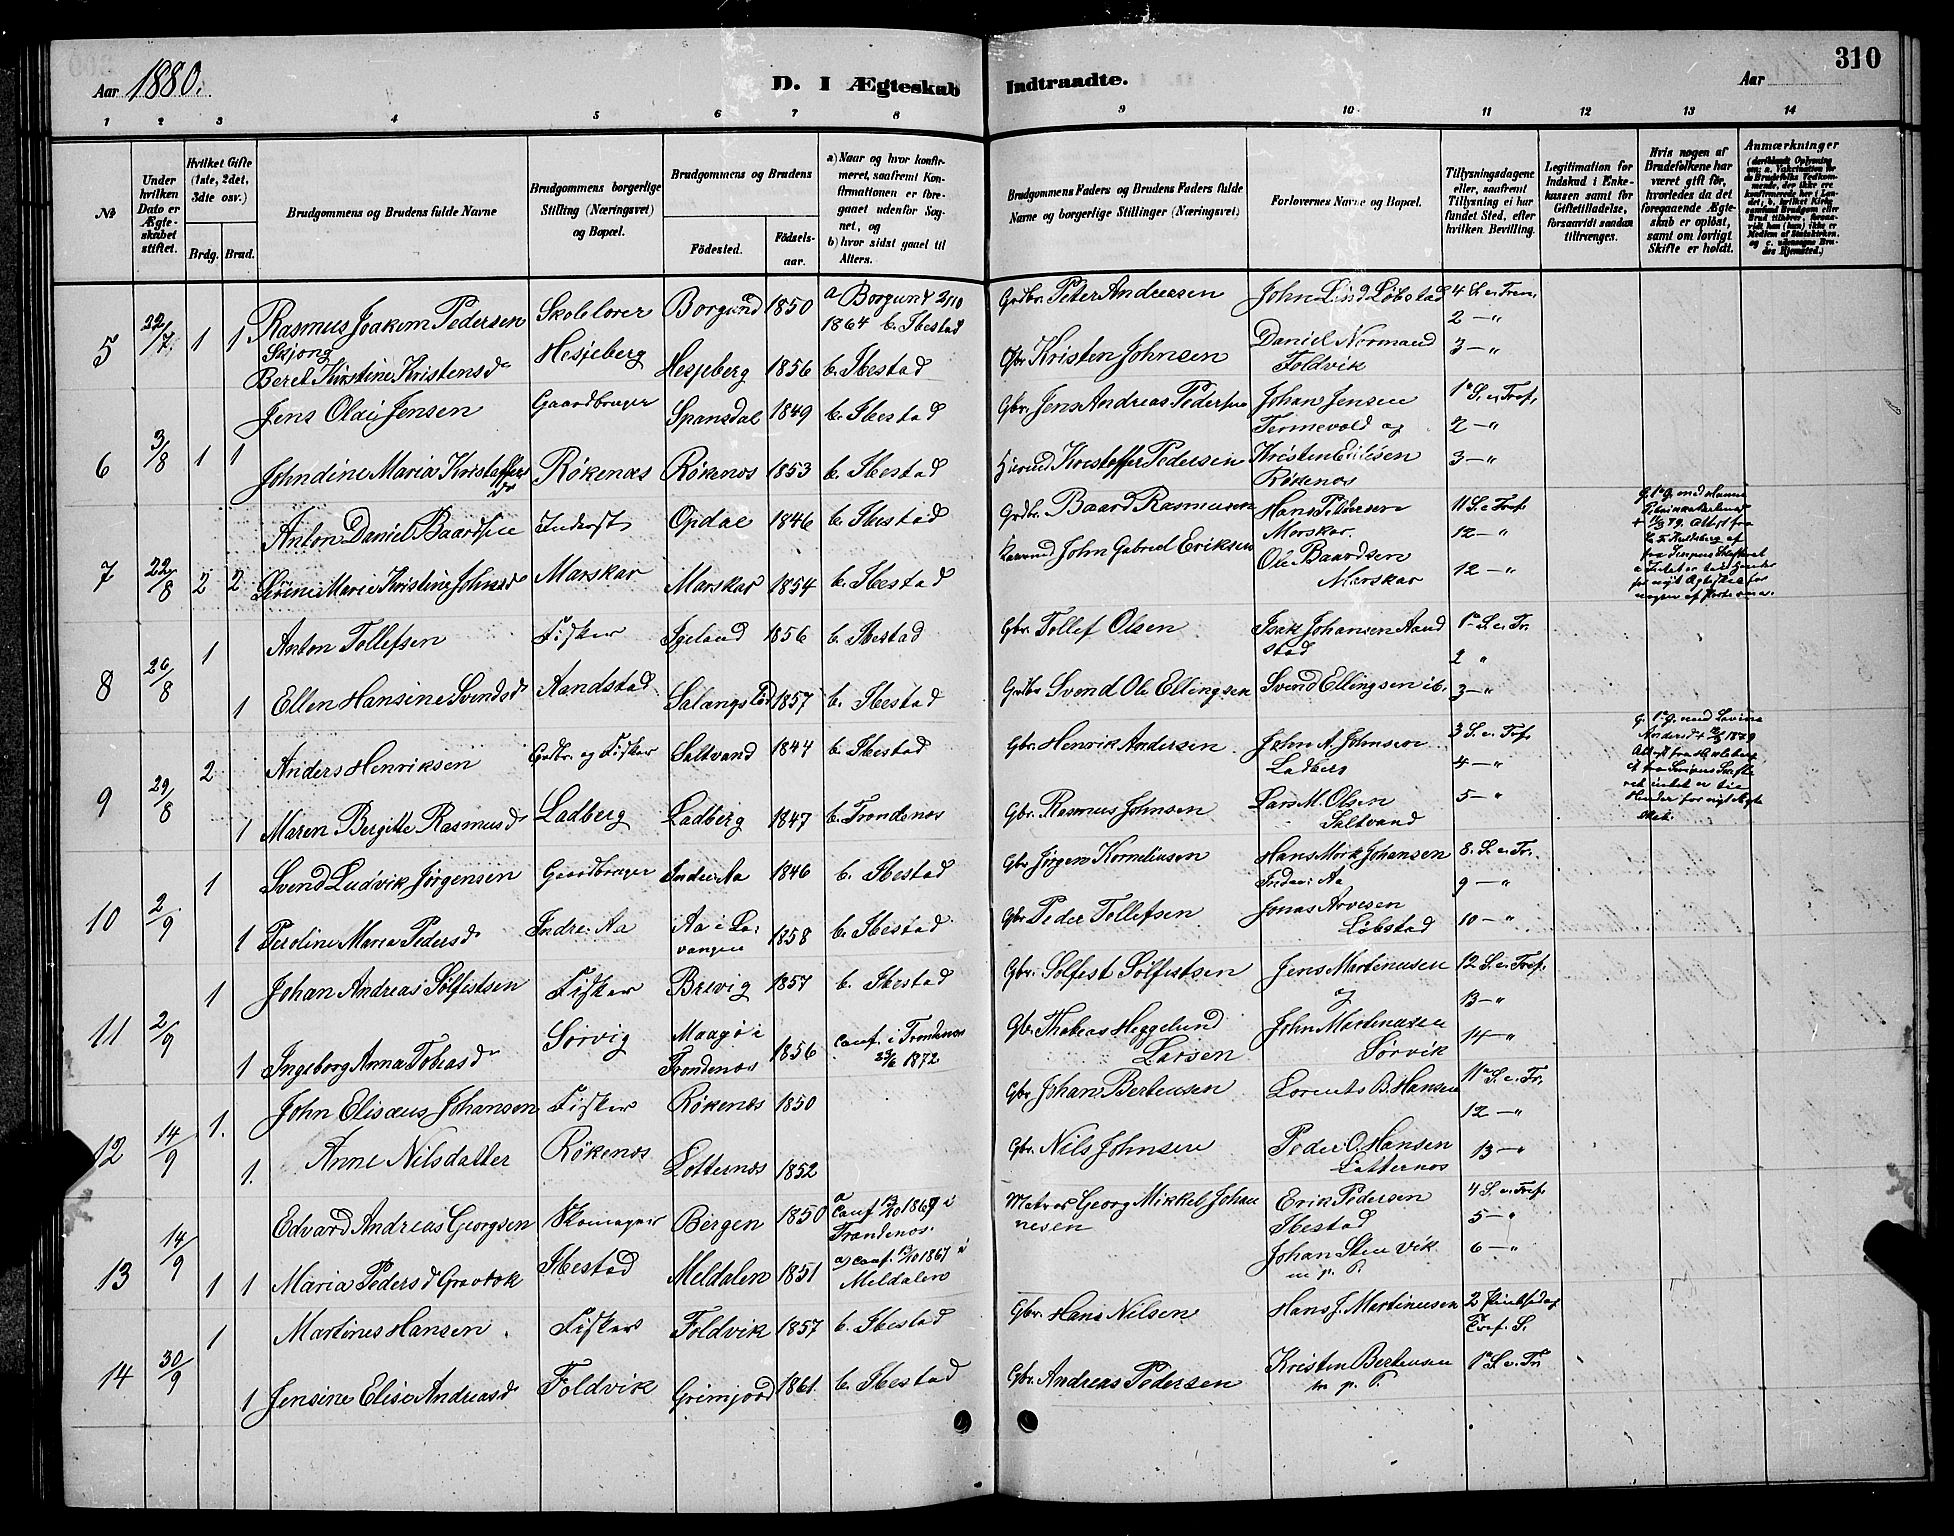 Aar 1880.
D. I Ægteskab Indtraadte.
Aar
310
1 2 3 4 5 6 7 8 9 10 11 12 13 14
No
Under hvilken Dato er Ægteskabet stiftet.
Hvilket Gifte (1ste, 2det, 3die osv.)
Brdg. Brud.
Brudgommens og Brudens fulde Navne
Brudgommens borgerlige Stilling (Næringsvei) og Bopæl.
Brudgommens og Brudens
Födested. Födselsaar.
a) Naar og hvor konfirmeret, saafremt Konfirmationen er foregaaet udenfor Sognet, og
b) hvor sidst gaaet til Alters.
Brudgommens Faders og Brudens Faders fulde Navne og borgerlige Stillinger (Næringsvei)
Forlovernes Navne og Bopæl.
Tillysningsdagene eller, saafremt Tillysning ei har fundet Sted, efter hvilken Bevilling.
Legitimation for Indskud i Enkekassen samt for Giftetilladelse, forsaavidt saadan tiltrænges.
Hvis nogen af Brudefolkene har været gift för, hvorledes da det foregaaende Ægteskab er oplöst, samt om lovligt Skifte er holdt.
Anmærkninger
5 22/7 1 1 Rasmus Joakim Pedersen Skjong Skolelærer Borgund 1850 a Borgund 2/10 1864 b. Ibestad Grdbr. Peter Andreasen John Lind Löbstad 4 S. e. Tren.
2 — "
Beret Kirstine Kristensd. Hesjeberg Hesjeberg 1856 b. Ibestad Gbr. Kristen Johnsen Daniel Normand Foldvik 3 — "
6 3/8 1 1 Jens Olai Jensen Gaardbruger Spansdal 1849 b. Ibestad Gbr. Jens Andreas Pedersen Johan Jensen Tennevold og 1ste S. e. Tref.
2 — "
Johndine Maria Kristoffersdr Rökenæs Rökenæs 1853 b. Ibestad Kristoffer Pedersen Kristen Rökenæs 3 — "
7 22/8 2 2 Anton Daniel Baardsen Inderst Opdal 1846 b. Ibestad Grdbr. Baard Rasmussen Hans Pedersen Marskar. 11 S. e. Tref.
12 — "
Marie Kristine Johnsd. Marskar Marskar 1854 b. Ibestad John Gabriel Eriksen Ole Baardsen Marskar 12 — "
8 26/8 1 Anton Tollefsen Fisker Igeland 1856 b. Ibestad Gbr. Tollef Olsen Isak Johansen Aandstad 1ste S. e. Tr.
2 "
1 Ellen Hansine Svendsd. Aandstad Salangslid 1857 b. Ibestad Grdbr Svend Ole Ellingsen Svend Ellingsen ib. 3 — "
9 29/8 2 Anders Henriksen Grdbr. og Fisker Saltvand 1844 b. Ibestad Gbr. Henrik Andersen John A. Johnsen Ladberg 3 S. e. Tref.
4 — "
1 Maren Bergitte Rasmusd. Ladberg Ladberg 1847 b. Trondenæs Gbr. Rasmus Johnsen Lars M. Olsen Saltvand 5 — "
10 2/9 1 Svend Ludvik Jörgensen Gaardbruger Indre Aa 1846 b. Ibestad Gbr. Jörgen Korneliusen Hans Mörk Johansen Indre Aa 8. S. e. Tr.
9 — "
1 Peroline Maria Pedersd. Indre Aa Aa i Lavangen 1858 b. Ibestad Gbr. Peder Tollefsen Jonas Arvesen Löbstad 10 — "
11 2/9 1 Johan Andreas Sölfestsen Fisker Brevig 1857 b. Ibestad Gbr. Sölfest Sölfestsen Jens Martinusen 12 S. e. Tref.
og 13 — "
1 Ingeborg Anna Tobiasd. Sörvig Maagö i Trondenæs 1856 conf. i Trondenæs 23/6 1872 Gbr. Thobias Heggelund Larsen John Martinusen Sörvik 14 — "
12 14/9 1. John Elisæus Johansen Fisker Rökenæs 1850 Gbr. Johan Berteusen Lorents B. Hansen 11te S. e. Tr.
12 — "
1. Anne Nilsdatter Rökenæs Lotternæs 1852 Gbr. Nils Johnsen Peder O. Hansen Lotternæs 13 — "
13 14/9 1 1 Edvard Andreas Georgsen Skomager Bergen 1850 a conf. 1867 i Trondenæs. Matros Georg Mikkel Johannesen Erik Pedersen Ibestad 4 S. e. Tref.
5 — "
Maria Pedersd. Gravrok Ibestad Meldalen 1851 a) conf. 1867 i Meldalen Johan Steu Vik m. p. P. 6 — "
14 30/9 1 Martines Hansen. Fisker Foldvik 1857 b. Ibestad Gbr. Hans Nilsen Hans J. Martinusen 2 Pintsedag
Tref. S.
1 Jensine Elise Andreasd. Foldvik Grimjord 1861. b. Ibestad Gbr. Andreas Pedersen Kristen Berteusen m. p. P. 1ste S. e. Tr.